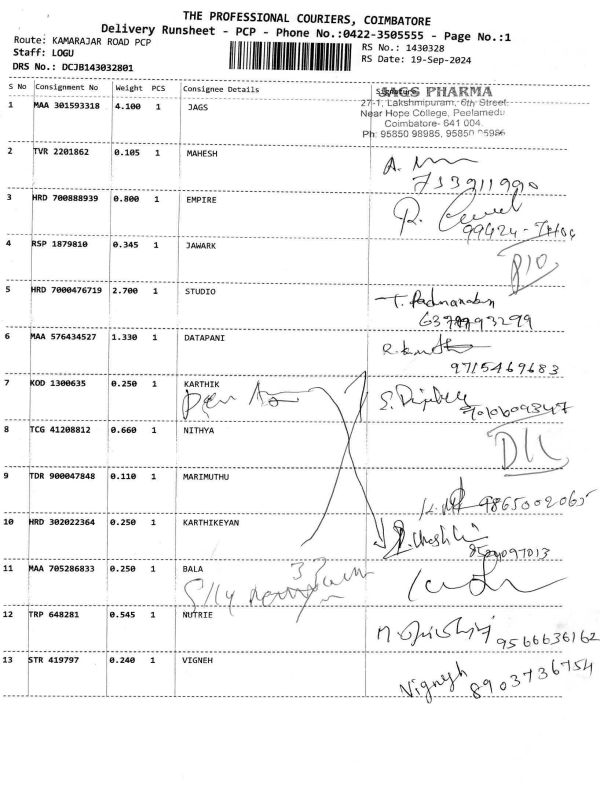 THE PROFESSIONAL COURIERS, COIMBATORE
Delivery Runsheet - PCP - Phone No.:0422-3505555 - Page No.:1
Route: KAMARAJAR ROAD PCP
RS No.: 1430328
Staff: LOGU
RS Date: 19-Sep-2024
DRS No.: DCJB143032801
S No Consignment No Weight PCS Consignee Details
1 MAA 301593318 4.100 1 JAGS
JAGS PHARMA
27-1, Lakshmipuram, 6th Street,
Near Hope College, Peelamedu
Coimbatore- 641 004.
Ph: 95850 98985, 95850
2 TVR 2201862 0.105 1 MAHESH
A.
3 HRD 700888939 0.800 1 EMPIRE
R.
99424-
4 RSP 1879810 0.345 1 JAWARK
5 HRD 7000476719 2.700 1 STUDIO
T. Padmanaban
6 MAA 576434527 1.330 1 DATAPANI
9715469683
7 KOD 1300635 0.250 1 KARTHIK
S.
8 TCG 41208812 0.660 1 NITHYA
9 TDR 900047848 0.110 1 MARIMUTHU
9865002065
10 HRD 302022364 0.250 1 KARTHIKEYAN
11 MAA 705286833 0.250 1 BALA
12 TRP 648281 0.545 1 NUTRIE
9566636162
13 STR 419797 0.240 1 VIGNEH
Vignesh 8903736754